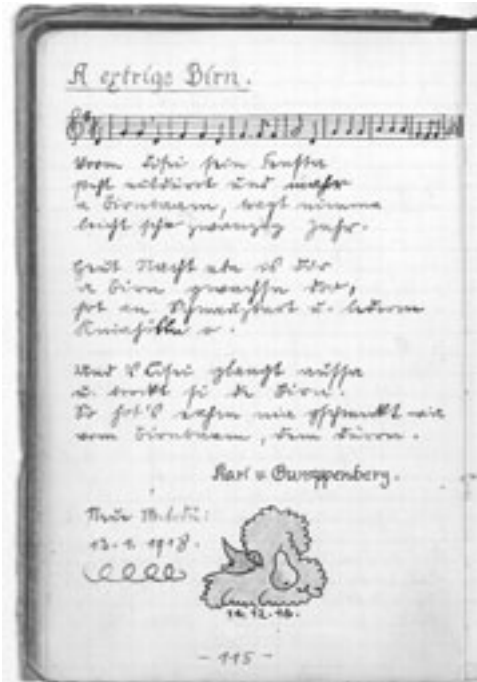 A extrige Birn.
Vorm Lisei sein Fensta
steht und
a Birnbaam, tragt nimma
leicht scho zwanzg Jahr.
Heut Nacht aba is dir
a Birn gwachsn dro,
hot an Schnauzbart u. lederne
Kniahösln o.
Und 's Lisei glangt aussa
u. brockt si de Birn.
So hot's nia gschmeckt wia
vom Birnbaam, dem dürrn.
Karl v. Gumppenberg.
Neue Melodie:
13.1.1918.
12.16.
- 115 -